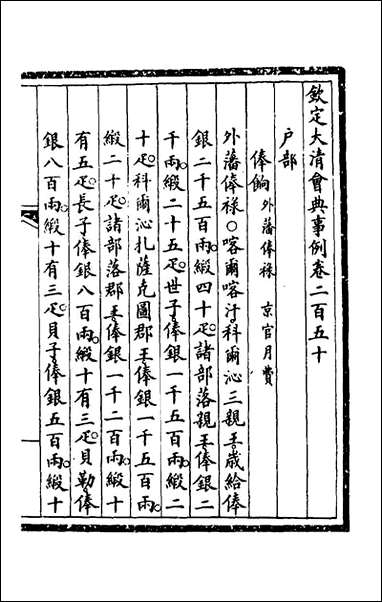 欽定大清會典事例卷二百五十
戶部
俸餉 外藩俸祿 京官月費
外藩俸祿○喀爾喀汗科爾沁三親王歲給俸
銀二千五百兩緞四十疋諸部落親王俸銀二
千兩緞二十五疋世子俸銀一千五百兩緞二
十疋科爾沁扎薩克圖郡王俸銀一千五百兩
緞二十疋諸部落郡王俸銀一千二百兩緞十
有五疋長子俸銀八百兩緞十有三疋貝勒俸
銀八百兩緞十有三疋貝子俸銀五百兩緞十